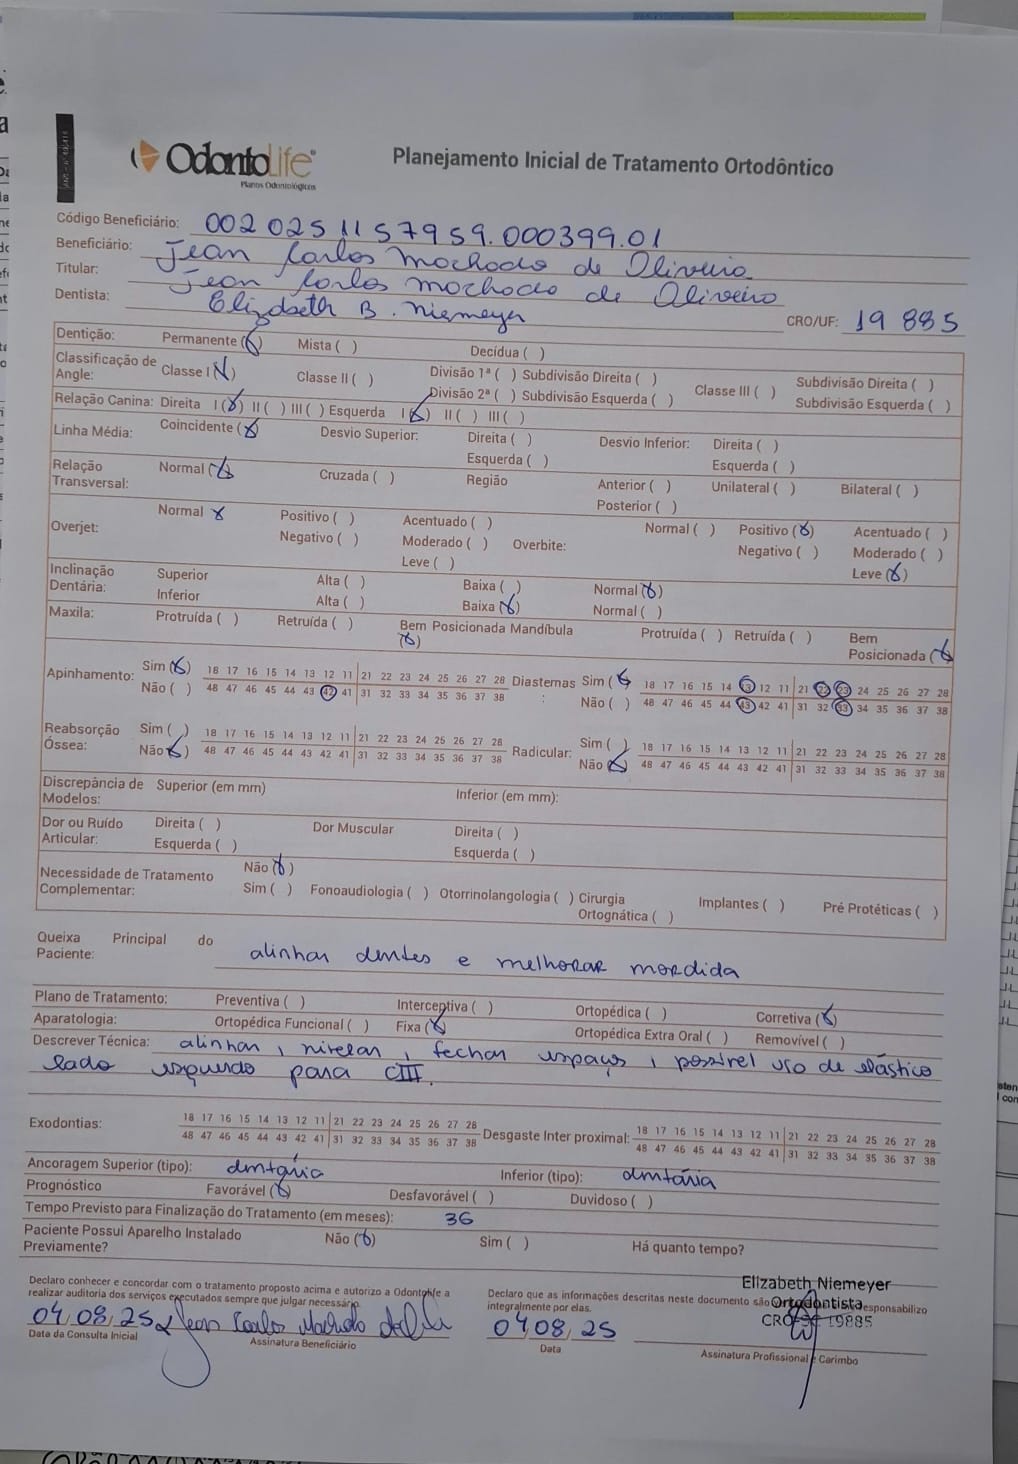 OdontoLife
Planos Odontológicos
Planejamento Inicial de Tratamento Ortodôntico
Código Beneficiário: 002 025 11 57959.000399.01
Beneficiário: Jean Carlos Machado de Oliveira
Titular: Jean Carlos Machado de Oliveira
Dentista: Elizabeth B. Niemeyer CRO/UF: 19 885
Dentição: Permanente (X) Mista ( ) Decídua ( )
Classificação de Angle: Classe I (X) Classe II ( ) Divisão 1ª ( ) Subdivisão Direita ( ) Classe III ( ) Subdivisão Direita ( )
Divisão 2ª ( ) Subdivisão Esquerda ( ) Subdivisão Esquerda ( )
Relação Canina: Direita I (X) II ( ) III ( ) Esquerda I (X) II ( ) III ( )
Linha Média: Coincidente (X) Desvio Superior: Direita ( ) Desvio Inferior: Direita ( )
Esquerda ( ) Esquerda ( )
Relação Transversal: Normal (X) Cruzada ( ) Região Anterior ( ) Unilateral ( ) Bilateral ( )
Posterior ( )
Overjet: Normal X Positivo ( ) Acentuado ( ) Overbite: Normal ( ) Positivo (X) Acentuado ( )
Negativo ( ) Moderado ( ) Negativo ( ) Moderado ( )
Leve ( ) Leve (X)
Inclinação Dentária: Superior Alta ( ) Baixa ( ) Normal (X)
Inferior Alta ( ) Baixa (X) Normal ( )
Maxila: Protruída ( ) Retruída ( ) Bem Posicionada (X) Mandíbula Protruída ( ) Retruída ( ) Bem Posicionada (X)
Apinhamento: Sim (X) 18 17 16 15 14 13 12 11 21 22 23 24 25 26 27 28 Diastemas: Sim (X) 18 17 16 15 14 13 12 11 21 22 23 24 25 26 27 28
Não ( ) 48 47 46 45 44 43 42 41 31 32 33 34 35 36 37 38 Não ( ) 48 47 46 45 44 43 42 41 31 32 33 34 35 36 37 38
Reabsorção Óssea: Sim ( ) 18 17 16 15 14 13 12 11 21 22 23 24 25 26 27 28 Radicular: Sim ( ) 18 17 16 15 14 13 12 11 21 22 23 24 25 26 27 28
Não (X) 48 47 46 45 44 43 42 41 31 32 33 34 35 36 37 38 Não (X) 48 47 46 45 44 43 42 41 31 32 33 34 35 36 37 38
Discrepância de Modelos: Superior (em mm) Inferior (em mm):
Dor ou Ruído Articular: Direita ( ) Dor Muscular Direita ( )
Esquerda ( ) Esquerda ( )
Necessidade de Tratamento Complementar: Não (X)
Sim ( ) Fonoaudiologia ( ) Otorrinolangologia ( ) Cirurgia Ortognática ( ) Implantes ( ) Pré Protéticas ( )
Queixa Principal do Paciente: alinhar dentes e melhorar mordida
Plano de Tratamento: Preventiva ( ) Interceptiva ( ) Ortopédica ( ) Corretiva (X)
Aparatologia: Ortopédica Funcional ( ) Fixa (X) Ortopédica Extra Oral ( ) Removível ( )
Descrever Técnica: alinhar, nivelar, fechar espaços, possível uso de elástico
lado esquerdo para CIII.
Exodontias: 18 17 16 15 14 13 12 11 21 22 23 24 25 26 27 28 Desgaste Inter proximal: 18 17 16 15 14 13 12 11 21 22 23 24 25 26 27 28
48 47 46 45 44 43 42 41 31 32 33 34 35 36 37 38 48 47 46 45 44 43 42 41 31 32 33 34 35 36 37 38
Ancoragem Superior (tipo): dentária Inferior (tipo): dentária
Prognóstico Favorável (X) Desfavorável ( ) Duvidoso ( )
Tempo Previsto para Finalização do Tratamento (em meses): 36
Paciente Possui Aparelho Instalado Previamente? Não (X) Sim ( ) Há quanto tempo?
Declaro conhecer e concordar com o tratamento proposto acima e autorizo a Odontolife a
realizar auditoria dos serviços executados sempre que julgar necessário
04/08/25 Jean Carlos Machado
Data da Consulta Inicial Assinatura Beneficiário
Declaro que as informações descritas neste documento são responsabilizo
integralmente por elas.
Elizabeth Niemeyer
Ortodontista
CRO-SC 19885
04/08/25
Data Assinatura Profissional e Carimbo